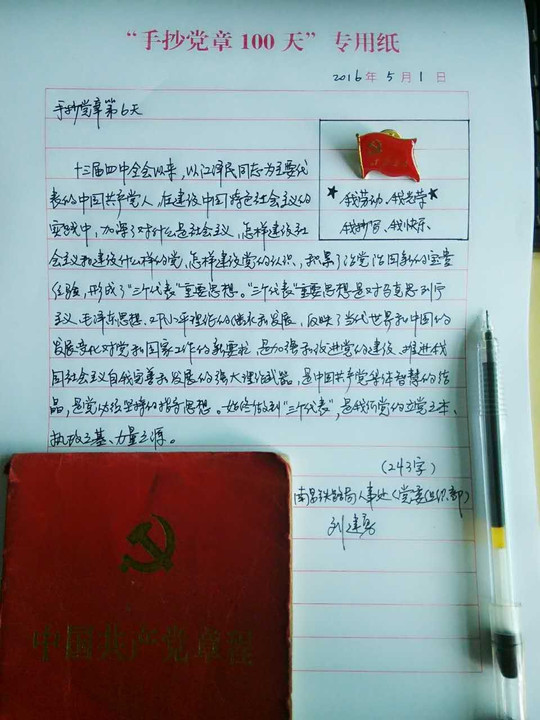 “手抄党章100天”专用纸
2016年5月1日
手抄党章第6天
★我劳动、我光荣★
我抄写、我快乐
十三届四中全会以来，以江泽民同志为主要代
表的中国共产党人，在建设中国特色社会主义的
实践中，加深了对什么是社会主义、怎样建设社
会主义和建设什么样的党、怎样建设党的认识，积累了治党治国新的宝贵
经验，形成了“三个代表”重要思想。“三个代表”重要思想是对马克思列宁
主义、毛泽东思想、邓小平理论的继承和发展，反映了当代世界和中国的
发展变化对党和国家工作的新要求，是加强和改进党的建设、推进我
国社会主义自我完善和发展的强大理论武器，是中国共产党集体智慧的结
晶，是党必须坚持的指导思想。始终做到“三个代表”，是我们党的立党之本、
执政之基、力量之源。
（243字）
南昌铁路局人事处（党委组织部）
刘建勇
中国共产党章程